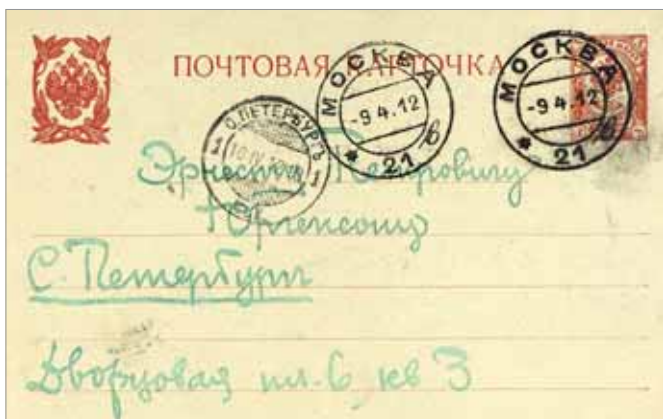 ПОЧТОВАЯ КАРТОЧКА
МОСКВА
-9.4.12
* 21 в
МОСКВА
-9.4.12
* 21 в
С.ПЕТЕРБУРГЪ
1 1
Эрнесту Петровичу
Юргенсону
С. Петербург
Дворцовая пл. 6, кв 3